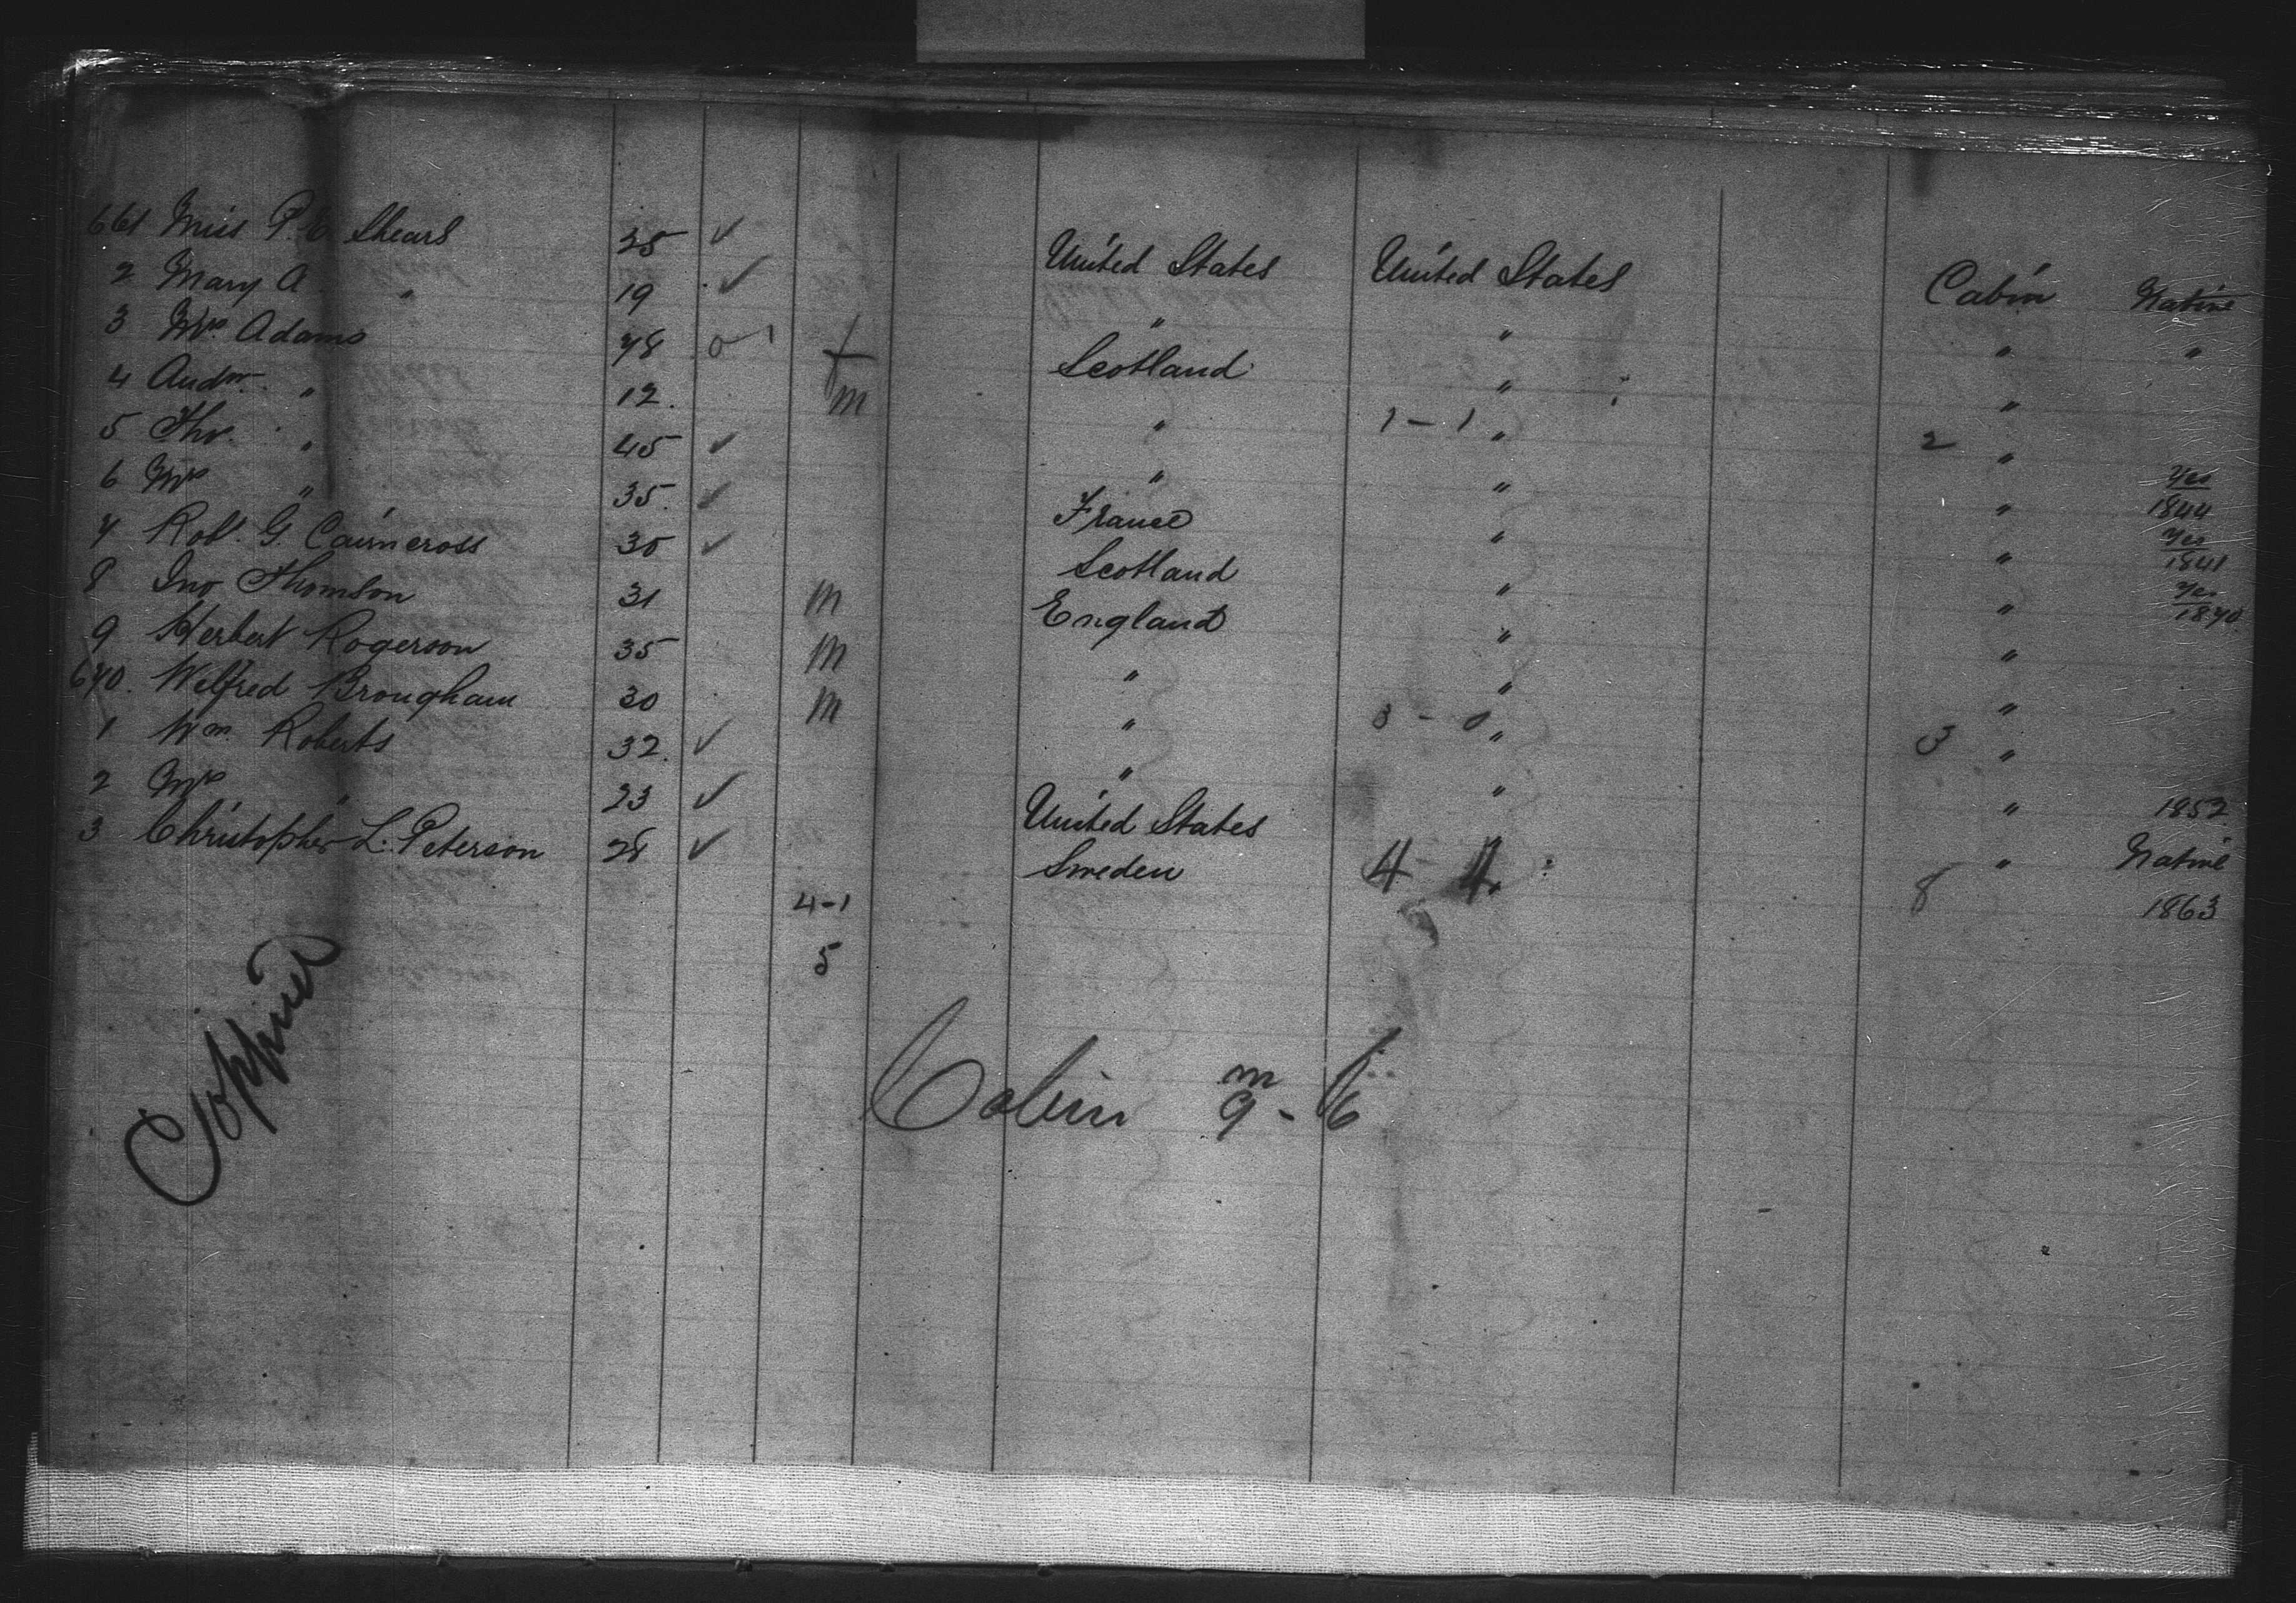 661 Miss P. C. Shears 25 ✓ United States United States Cabin Native
2 Mary A " 19 ✓ " " " "
3 Mrs. Adams 48 0-1 f Scotland " "
4 Andw. " 12. m " 1-1 " 2 "
5 Tho. " 45 ✓ " " " Yes 1844
6 Mrs " 35. ✓ France " " Yes 1841
7 Robt. G. Cairncross 30 ✓ Scotland " " Yes 1870
8 Jno Thomson 31 m England " "
9 Herbert Rogerson 35 m " " "
670. Welfred Brougham 30 m " 3-0 " 3 "
1 Wm. Roberts 32. ✓ " " " 1852
2 Mrs " 23 ✓ United States " Native
3 Christopher L. Peterson 28 ✓ Sweden 4-4 " 8 1863
4-1
5
Coppied
Cabin m 9 - f 6